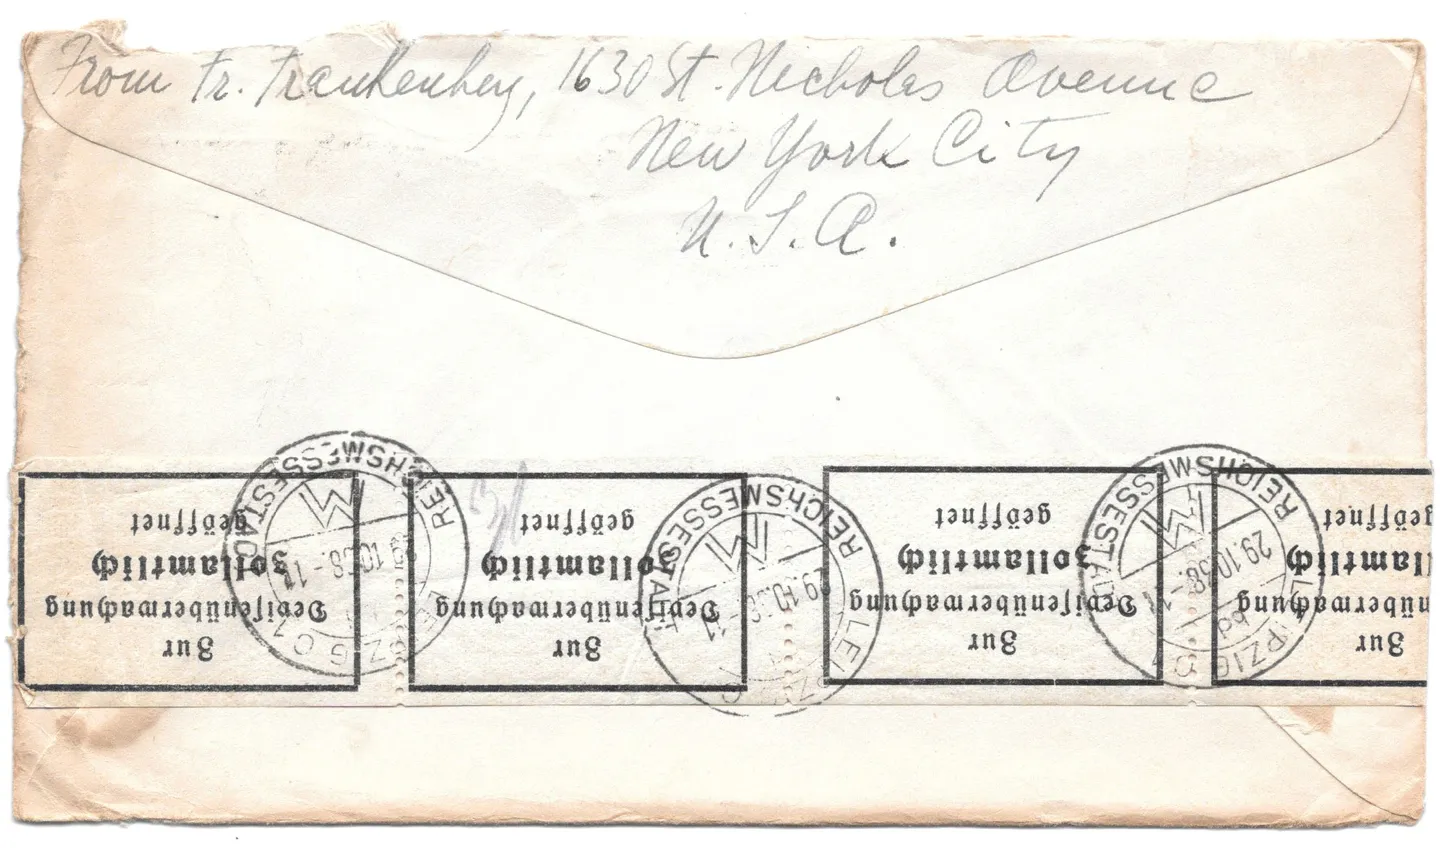 From Fr. Frankenberg, 1630 St. Nicholas Avenue
New York City
U. S. A.
Zur
Devisenüberwachung
zollamtlich
geöffnet
Zur
Devisenüberwachung
zollamtlich
geöffnet
Zur
Devisenüberwachung
zollamtlich
geöffnet
Zur
nüberwachung
llamtlich
geöffnet
LEIPZIG C 1
REICHSMESSESTADT
29.10.38.-11
LEIPZIG C
REICHSMESSESTADT
29.10.38.-11
LEIPZIG C 1
REICHSMESSESTADT
29.10.38.-11
bd